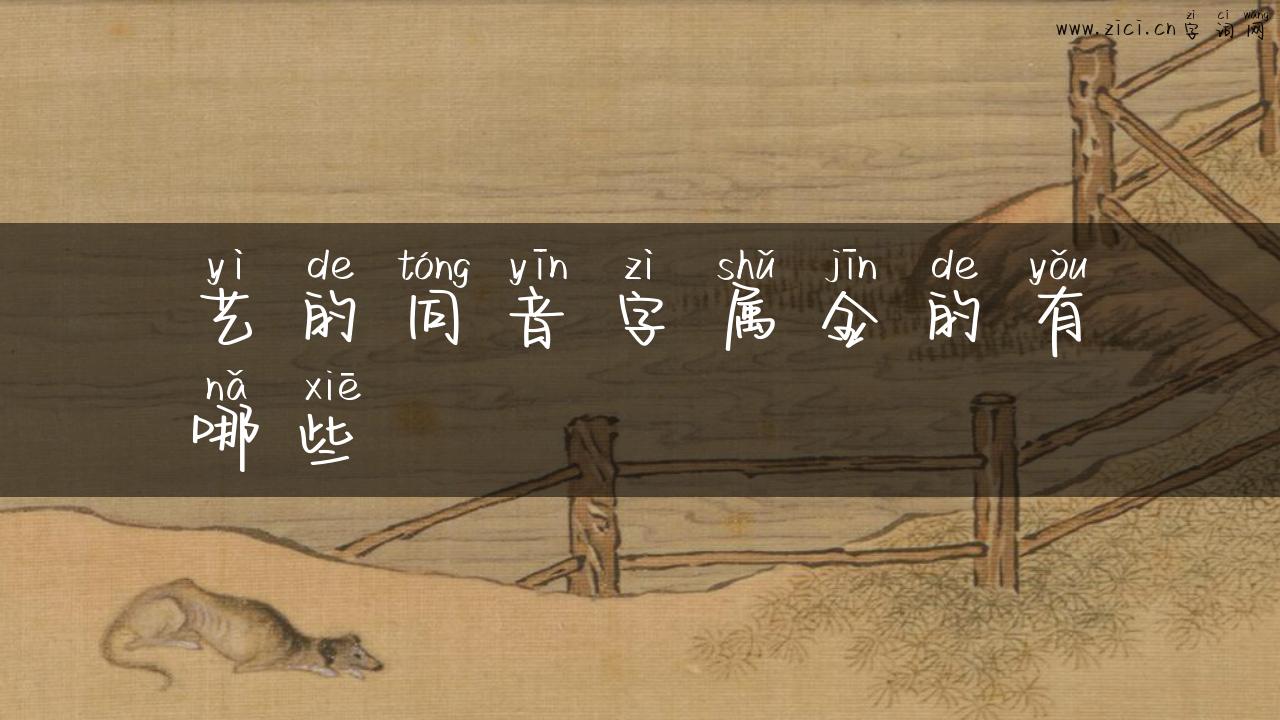 zì cí wǎng
www.zici.cn 字词网
yì de tóng yīn zì shǔ jīn de yǒu
艺的同音字属金的有
nǎ xiē
哪些